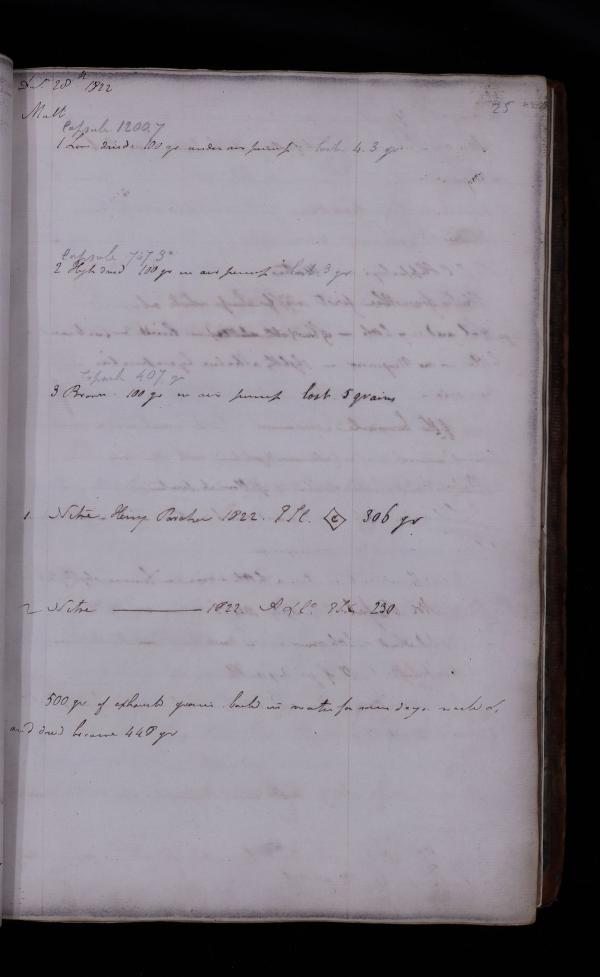 28th 1822
25
Malt
Capsule 1200.7
1 Low dried 100 gr under air pump lost 4.3 gr
Capsule 757.3
2 High dried 100 gr in air pump lost 3 gr
Capsule 407 gr
3 Brown 100 gr in air pump lost 5 grains
1. Nitre Henry 1822. 306 gr
2 Nitre ——— 1822 230
500 gr of exhausted guaiac boiled in water for nine days washed
and dried became 448 gr